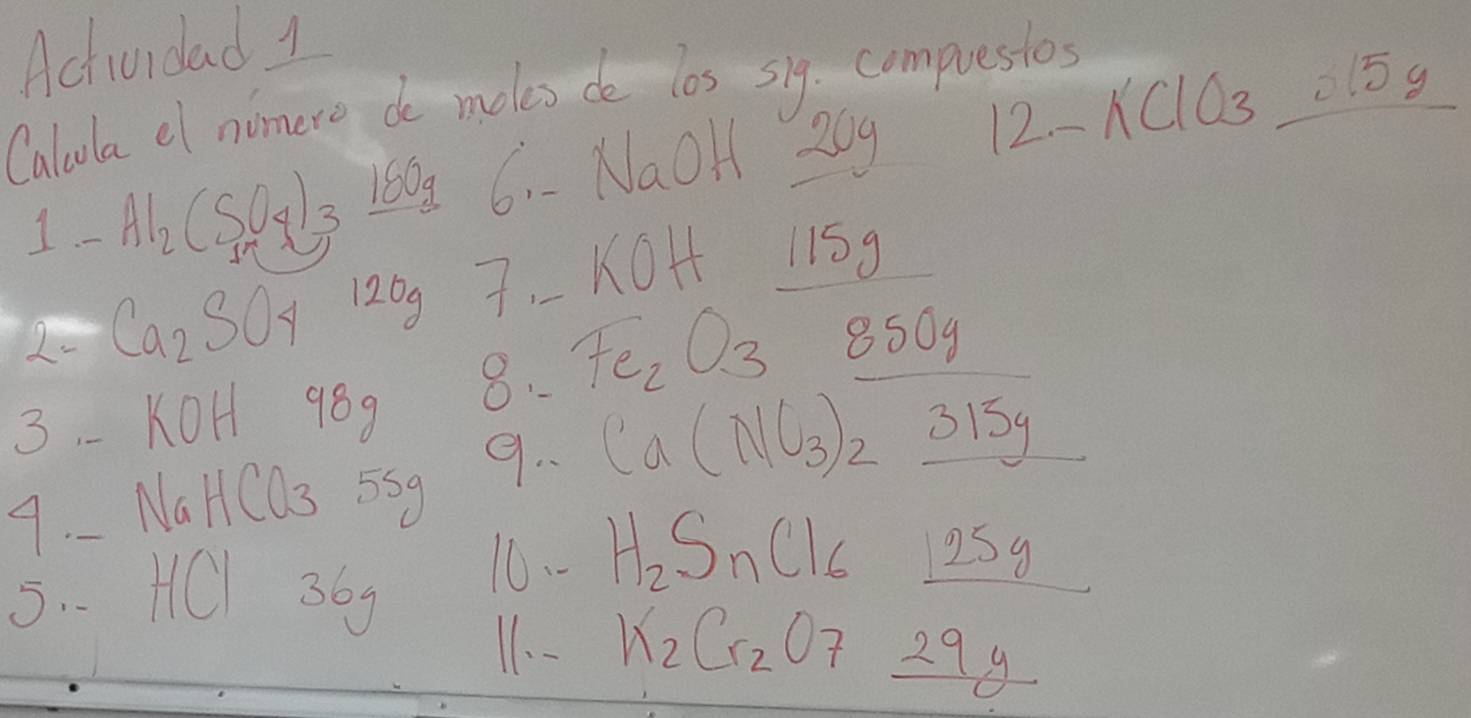 Actividad 1
Calcula el número de moles de los sig. compuestos
1.- Al2(SO4)3 180g
2.- Ca2SO4 120g
3.- KOH 98g
4.- NaHCO3 55g
5.- HCl 36g
6.- NaOH 20g
7.- KOH 115g
8.- Fe2O3 850g
9.- Ca(NO3)2 315g
10.- H2SnCl6 125g
11.- K2Cr2O7 29g
12.- KClO3 315g